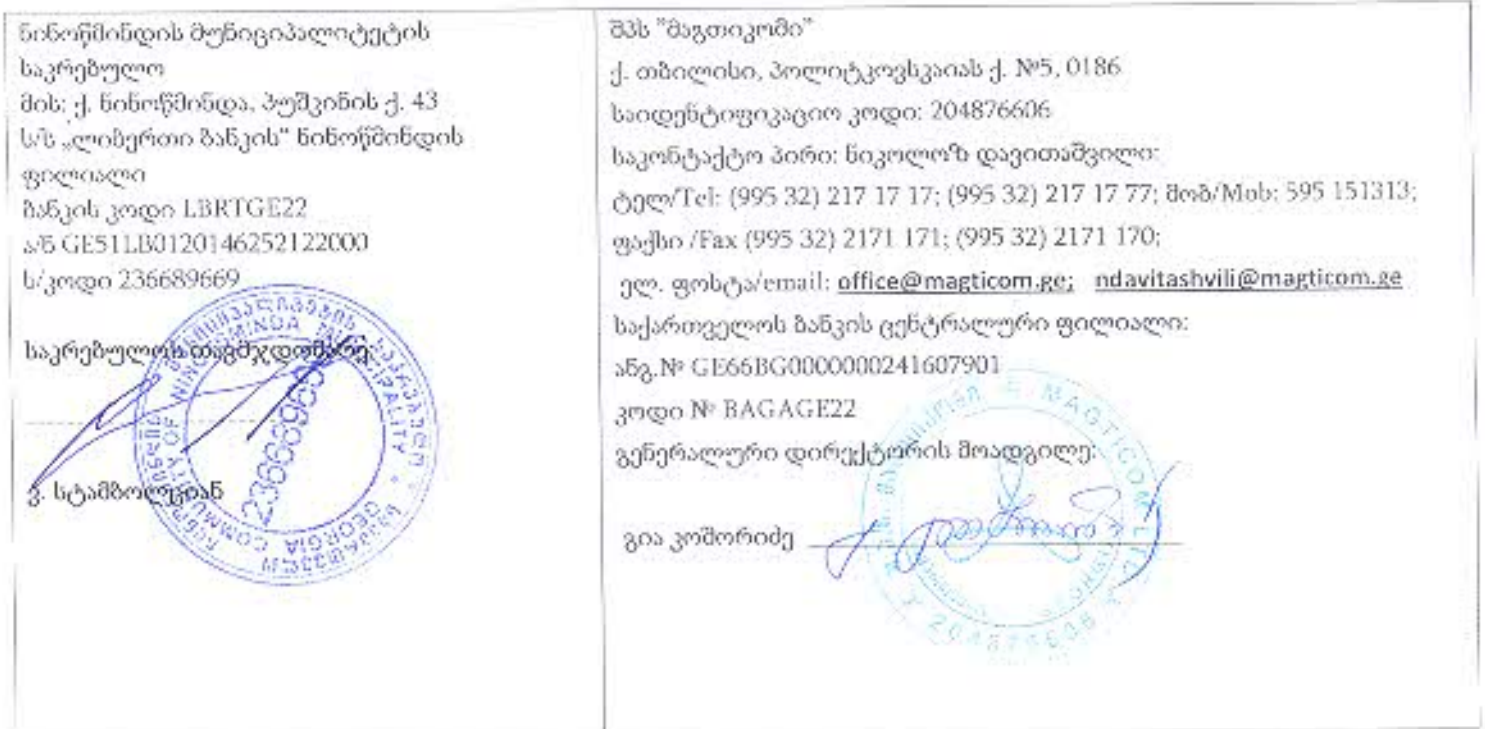 ნინოწმინდის მუნიციპალიტეტის
საკრებულო
მის: ქ. ნინოწმინდა, პუშკინის ქ. 43
ს/ს „ლიბერთი ბანკის“ ნინოწმინდის
ფილიალი
ბანკის კოდი LBRTGE22
ა/ნ GE51LB0120146252122000
ს/კოდი 236689669
საკრებულოს თავმჯდომარე:
ვ. სტამბოლციან
NINOTSMINDA MUNICIPALITY
COMMUNITY OF
GEORGIA
236689669
შპს "მაგთიკომი"
ქ. თბილისი, პოლიტკოვსკაიას ქ. №5, 0186
საიდენტიფიკაციო კოდი: 204876606
საკონტაქტო პირი: ნიკოლოზ დავითაშვილი:
ტელ/Tel: (995 32) 217 17 17; (995 32) 217 17 77; მობ/Mob: 595 151313;
ფაქსი /Fax (995 32) 2171 171; (995 32) 2171 170;
ელ. ფოსტა/email: office@magticom.ge; ndavitashvili@magticom.ge
საქართველოს ბანკის ცენტრალური ფილიალი:
ანგ.№ GE66BG0000000241607901
კოდი № BAGAGE22
გენერალური დირექტორის მოადგილე:
გია კოშორიძე
MAGTICOM LTD
204876606